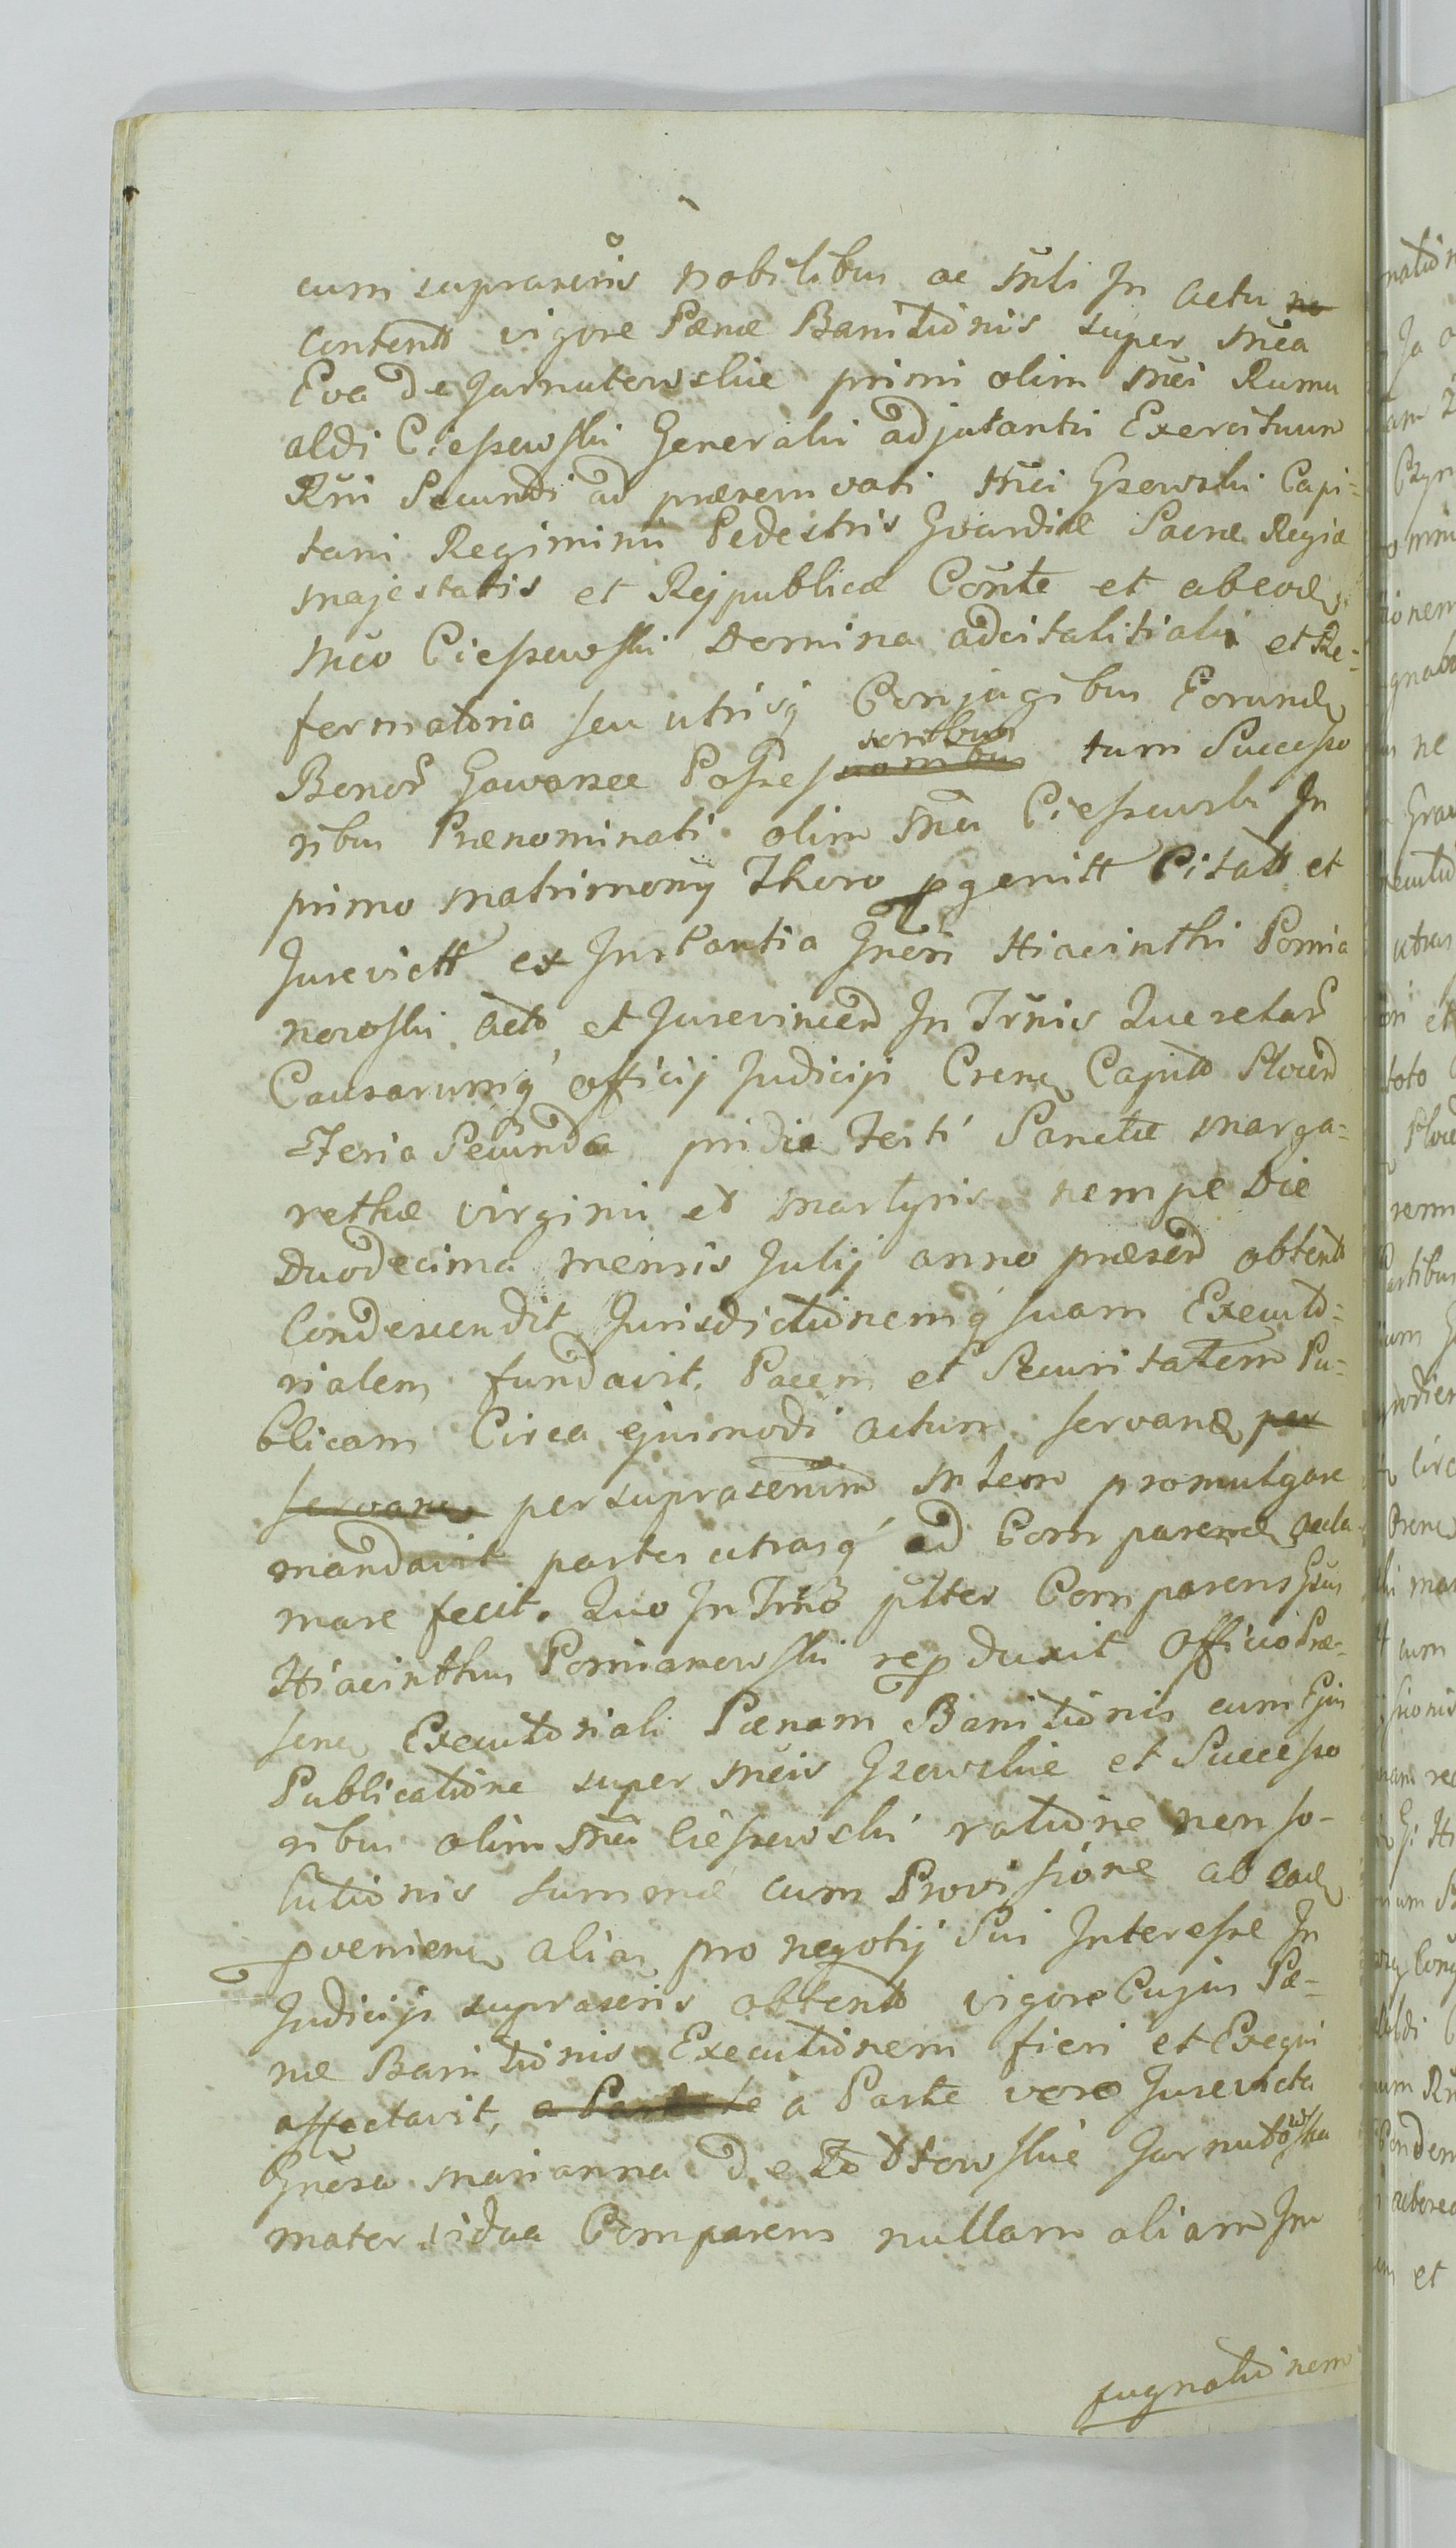 cum suprascris Nobilibus ac Mlti In actu no
content vigore Pænæ Banitionis super Mca
Eva de Jarnutowskie primi olim Mci Rumu
aldi Ciepsewski Generalis adjutantis Exercituum
Rni Secundi ad præsens voti Mci Gzowski Capi=
tani Regiminis Pedestris Gvardiæ Sacræ Regiæ
Majestatis et Rejpublicæ Conte et ab eod
Mco Ciepsewski Domina advitalitialis et Re=
formatoria seu utrisq Conjugibus Eorund
Bonor Gowarzee Posses soribus tum Successo
ribus Prænominati olim Mci Ciepsewski In
primo Matrimony Thoro pgenitt Citatt et
Jurevictt ex Instantia Gnesi Hiacinthi Pomia
nowski Acto et Jurevincen In Trnis Querelar
Causarumq officij Judicij Crens Capitt Plocen
Feria Secunda pridie Festi Sanctæ Marga=
rethæ virginis et Martyris nempe Die
Duodecima Mensis Julij anno præsen obtent
Condescendit Jurisdictionemq suam Executo=
rialem fundavit, Pacem et Securitatem Pu=
blicam Circa ejusmodi actum servand per
servand per suprascrium Mtem promulgare
mandavit partes utrasq ad Comparend acla
mare fecit. Quo In Trno plter Comparens Gsus
Hiacinthus Pomianowski repduxit Officio Præ=
sens Executoriali Pænam Banitionis cum Ejus
Publicatione super Mcis Gzowskie et Successo
ribus olim Mci Ciepsewski ratione non so-
lutionis summæ cum Provisione ab ead
pveniens alias pro negotij Sui Interesse In
Judicijs suprascris obtent vigore Cujus Pæ-
næ Banitionis Executionem fieri et Exequi
affectavit, a Parte a Parte vero Jurevicta
Gnesa Marianna de Jarnutowska
mater vidua Comparens nullam aliam Im
pugnationem